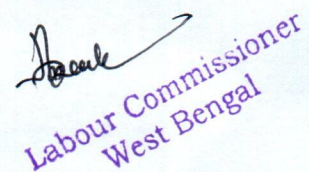 Labour Commissioner
West Bengal